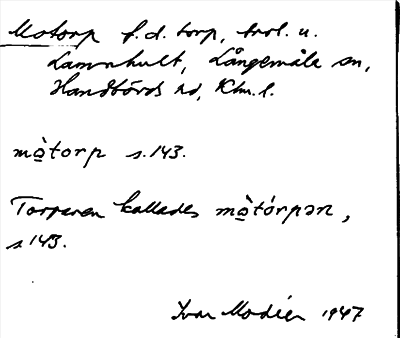 Motorp f.d. torp, trol. u.
Lammhult, Långemåla sn,
Handbörds hd, Klm. l.
mò̱torp s.143.
Torparen kallades mò̱tórpən,
s.143.
Ivar Modéer 1947